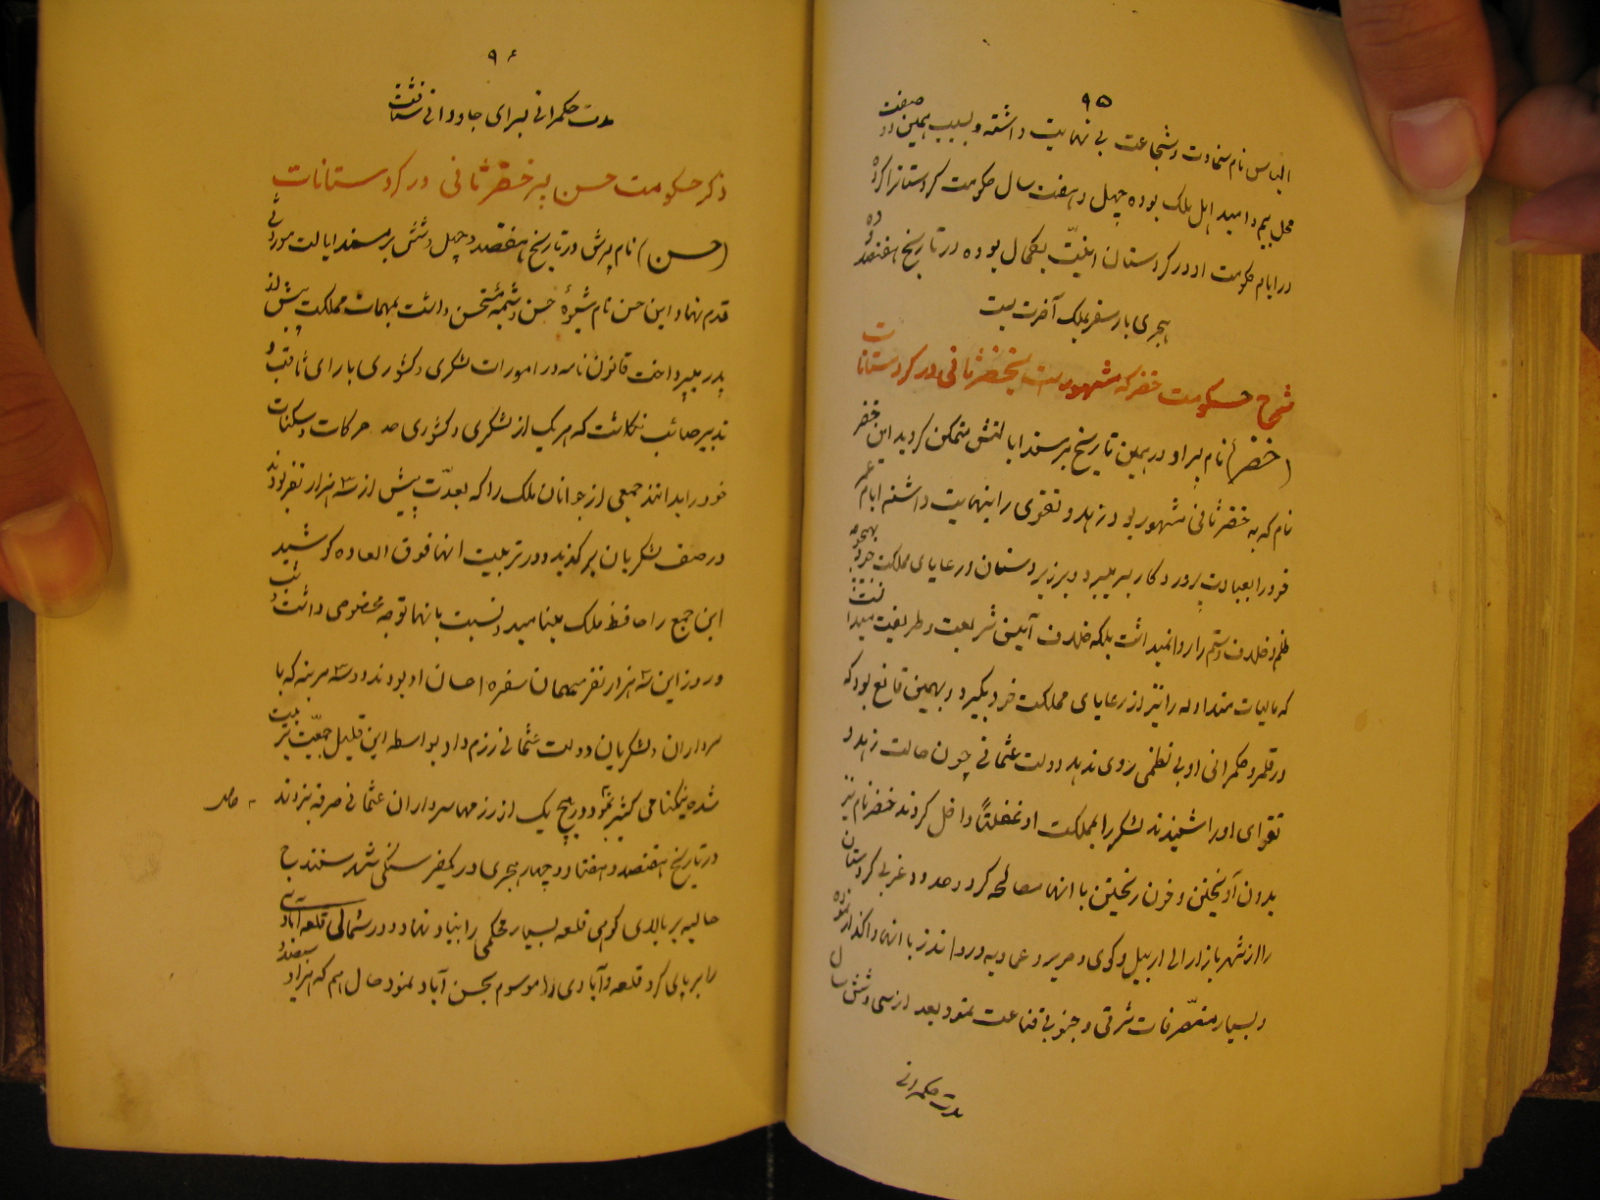 ۹۵
الیاس نام سخاوت و شجاعت بی نهایت داشته و بسبب همین دو صفت
محل بیم و امید اهل ملک بوده چهل و هفت سال حکومت کردستانرا کرده
در ایام حکومت او در کردستان امنیّت بکمال بوده در تاریخ هفتصد و ده
هجری بار سفر بملک آخرت بست
شرح حکومت خضر که مشهور است بخضر ثانی در کردستانات
(خضر) نام پسر او در همین تاریخ بر مسند ایالتش متمکن گردید این خضر
نام که به خضر ثانی مشهور بود زهد و تقوی را بنهایت داشته ایام عمر
خود را بعبادت پروردکار بسر میبرد و بر زیر دستان و رعایای مملکت خود بهیچوجه
ظلم و خلاف و ستم را روا نمیداشت بلکه خلاف آیین شریعت و طریقت میدانست
که مالیات متداوله را نیز از رعایای مملکت خود بگیرد و بهمین قانع بود که
در قلمرو حکمرانی او بی نظمی روی ندهد دولت عثمانی چون حالت زهد و
تقوای او را شنیدند لشکر را بمملکت او غفلتاً داخل کردند خضر نام نیز
بدون آویختن و خون ریختن با انها مصالحه کرد و حدود غربی کردستان
را از شهر بازار الی اربیل و کوی و حریر و عمادیه و رواندز با انها واکذار نموده
و بسیار متصّرفات شرقی و جنوبی قناعت نمود بعد از سی و شش سال
مدت حکمرانی
۹۶
مدت حکمرانی بسرای جاودانی شتافت
ذکر حکومت حسن پسر خضر ثانی در کردستانات
(حسن) نام پسرش در تاریخ هفتصد و چهل و شش بر مسند ایالت موروثی
قدم نهاد و این حسن نام شیوهٔ حسن و شیمهٔ مستحسن داشت بمهمات مملکت بیش از
پدر میپرداخت قانون نامه در امورات لشکری و کشوری با رای ثاقب و
تدبیر صائب نکاشت که هر یک از لشکری و کشوری حد حرکات و سکنات
خود را بدانند جمعی از جوانان ملک را که بعدّت بیش از سه هزار نفر بودند
در صف لشکریان برکزید و در تربیت انها فوق العاده کوشید
این جمع را حافظ ملک مینامید و نسبت بانها توجه مخصوص داشت و شب
و روز این سه هزار نفر میهمان سفره احسان او بودند و سه مرتبه که با
سرداران و لشکریان دولت عثمانی رزم داد بواسطه این قلیل جمعیّت تربیت
شده نیکنامی کثیر نمود و در هیچ یک از رزمها سرداران عثمانی صرفه نبردند
در تاریخ هفتصد و هفتاد و چهار هجری در یکفرسنکی شهر سنندج
حالیه بر بالای کوهی قلعه بسیار محکمی را بنیاد نهاد و در شمالی قلعه آبادی
را بر پای کرد قلعه و آبادی را موسوم بحسن آباد نمود حال هم که هزار و سیصد و